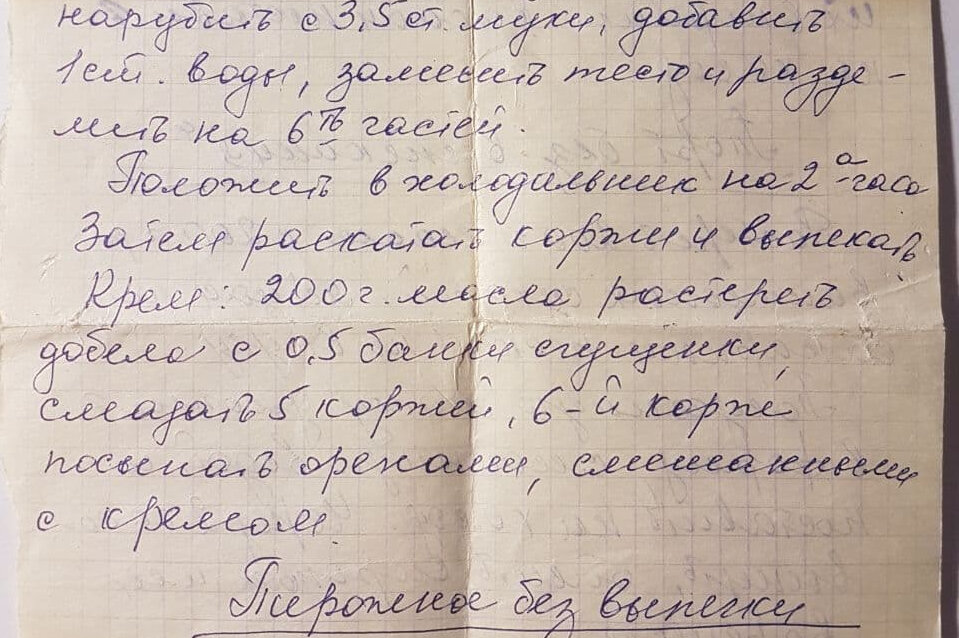 нарубить с 3,5 ст. муки, добавить
1 ст. воды, замесить тесто и разде-
лить на 6ть частей.
Положить в холодильник на 2а часа
Затем раскатать коржи и выпекать
Крем: 200 г. масла растереть
добела с 0,5 банки сгущенки,
смазать 5 коржей, 6-й корж
посыпать орехами, смешанными
с кремом.
Пирожное без выпечки